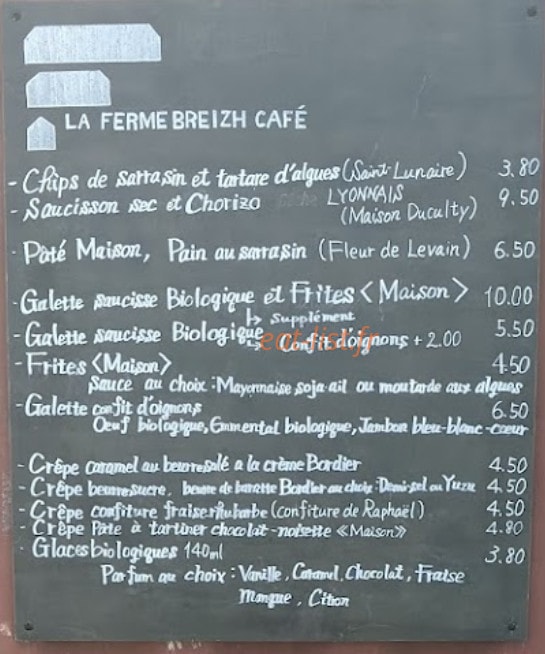 LA FERME BREIZH CAFÉ
- Chips de sarrasin et tartare d'algues (Saint-Lunaire) 3.80
- Saucisson sec et Chorizo LYONNAIS 9.50
(Maison Duculty)
- Pâté Maison, Pain au sarrasin (Fleur de Levain) 6.50
- Galette saucisse Biologique et Frites <Maison> 10.00
↳ Supplément
- Galette saucisse Biologique Confit d'oignons + 2.00 5.50
eat-list.fr
- Frites <Maison> 4.50
Sauce au choix : Mayonnaise soja-ail ou moutarde aux algues
- Galette confit d'oignons 6.50
Oeuf biologique, Emmental biologique, Jambon bleu-blanc-cœur
- Crêpe caramel au beurre salé a la crème Bordier 4.50
- Crêpe beurre sucre, beurre de baratte Bordier au choix : Demi-sel ou Yuzu 4.50
- Crêpe confiture fraise rhubarbe (confiture de Raphaël) 4.50
- Crêpe Pâte à tartiner chocolat-noisette «Maison» 4.80
- Glaces biologiques 140ml 3.80
Parfum au choix : Vanille, Caramel, Chocolat, Fraise
Mangue, Citron